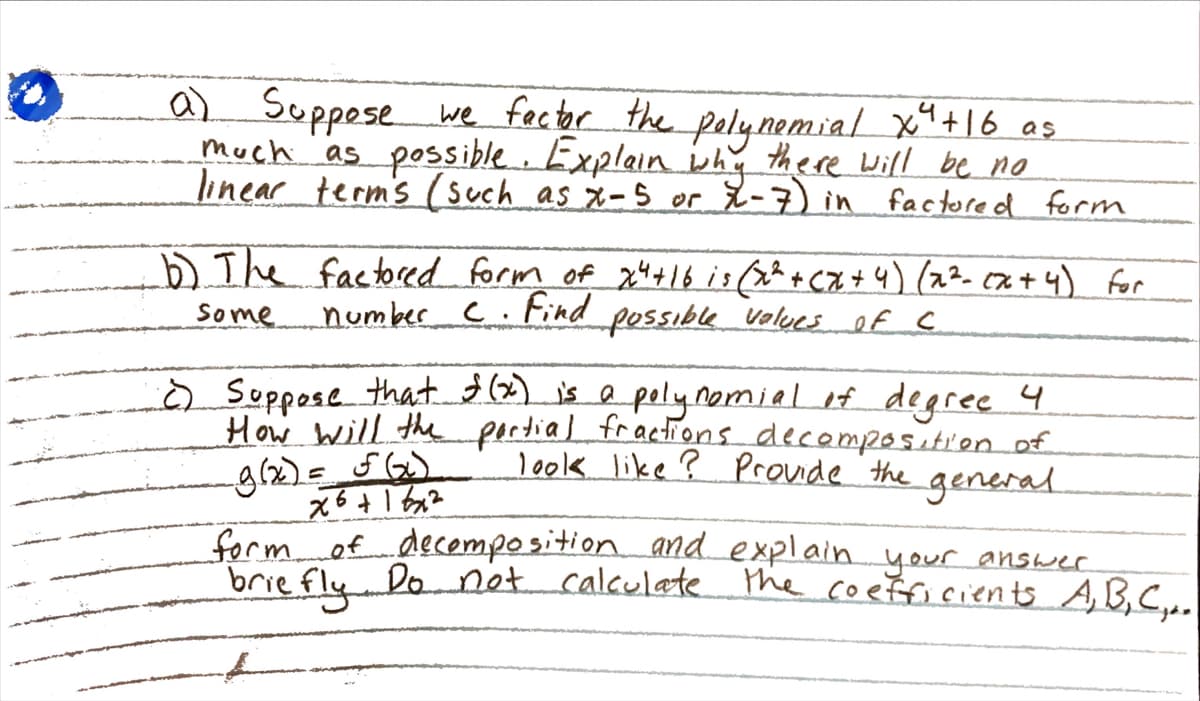 a) Suppose we factor the polynomial x⁴+16 as
much as possible. Explain why there will be no
linear terms (such as x-5 or x-7) in factored form
b) The factored form of x⁴+16 is (x²+cx+4)(x²-cx+4) for
some number c. Find possible values of c
c) Suppose that f(x) is a polynomial of degree 4
How will the partial fractions decomposition of
g(x) = f(x) / x⁶+16x² look like? Provide the general
form of decomposition and explain your answer
briefly. Do not calculate the coefficients A,B,C,...